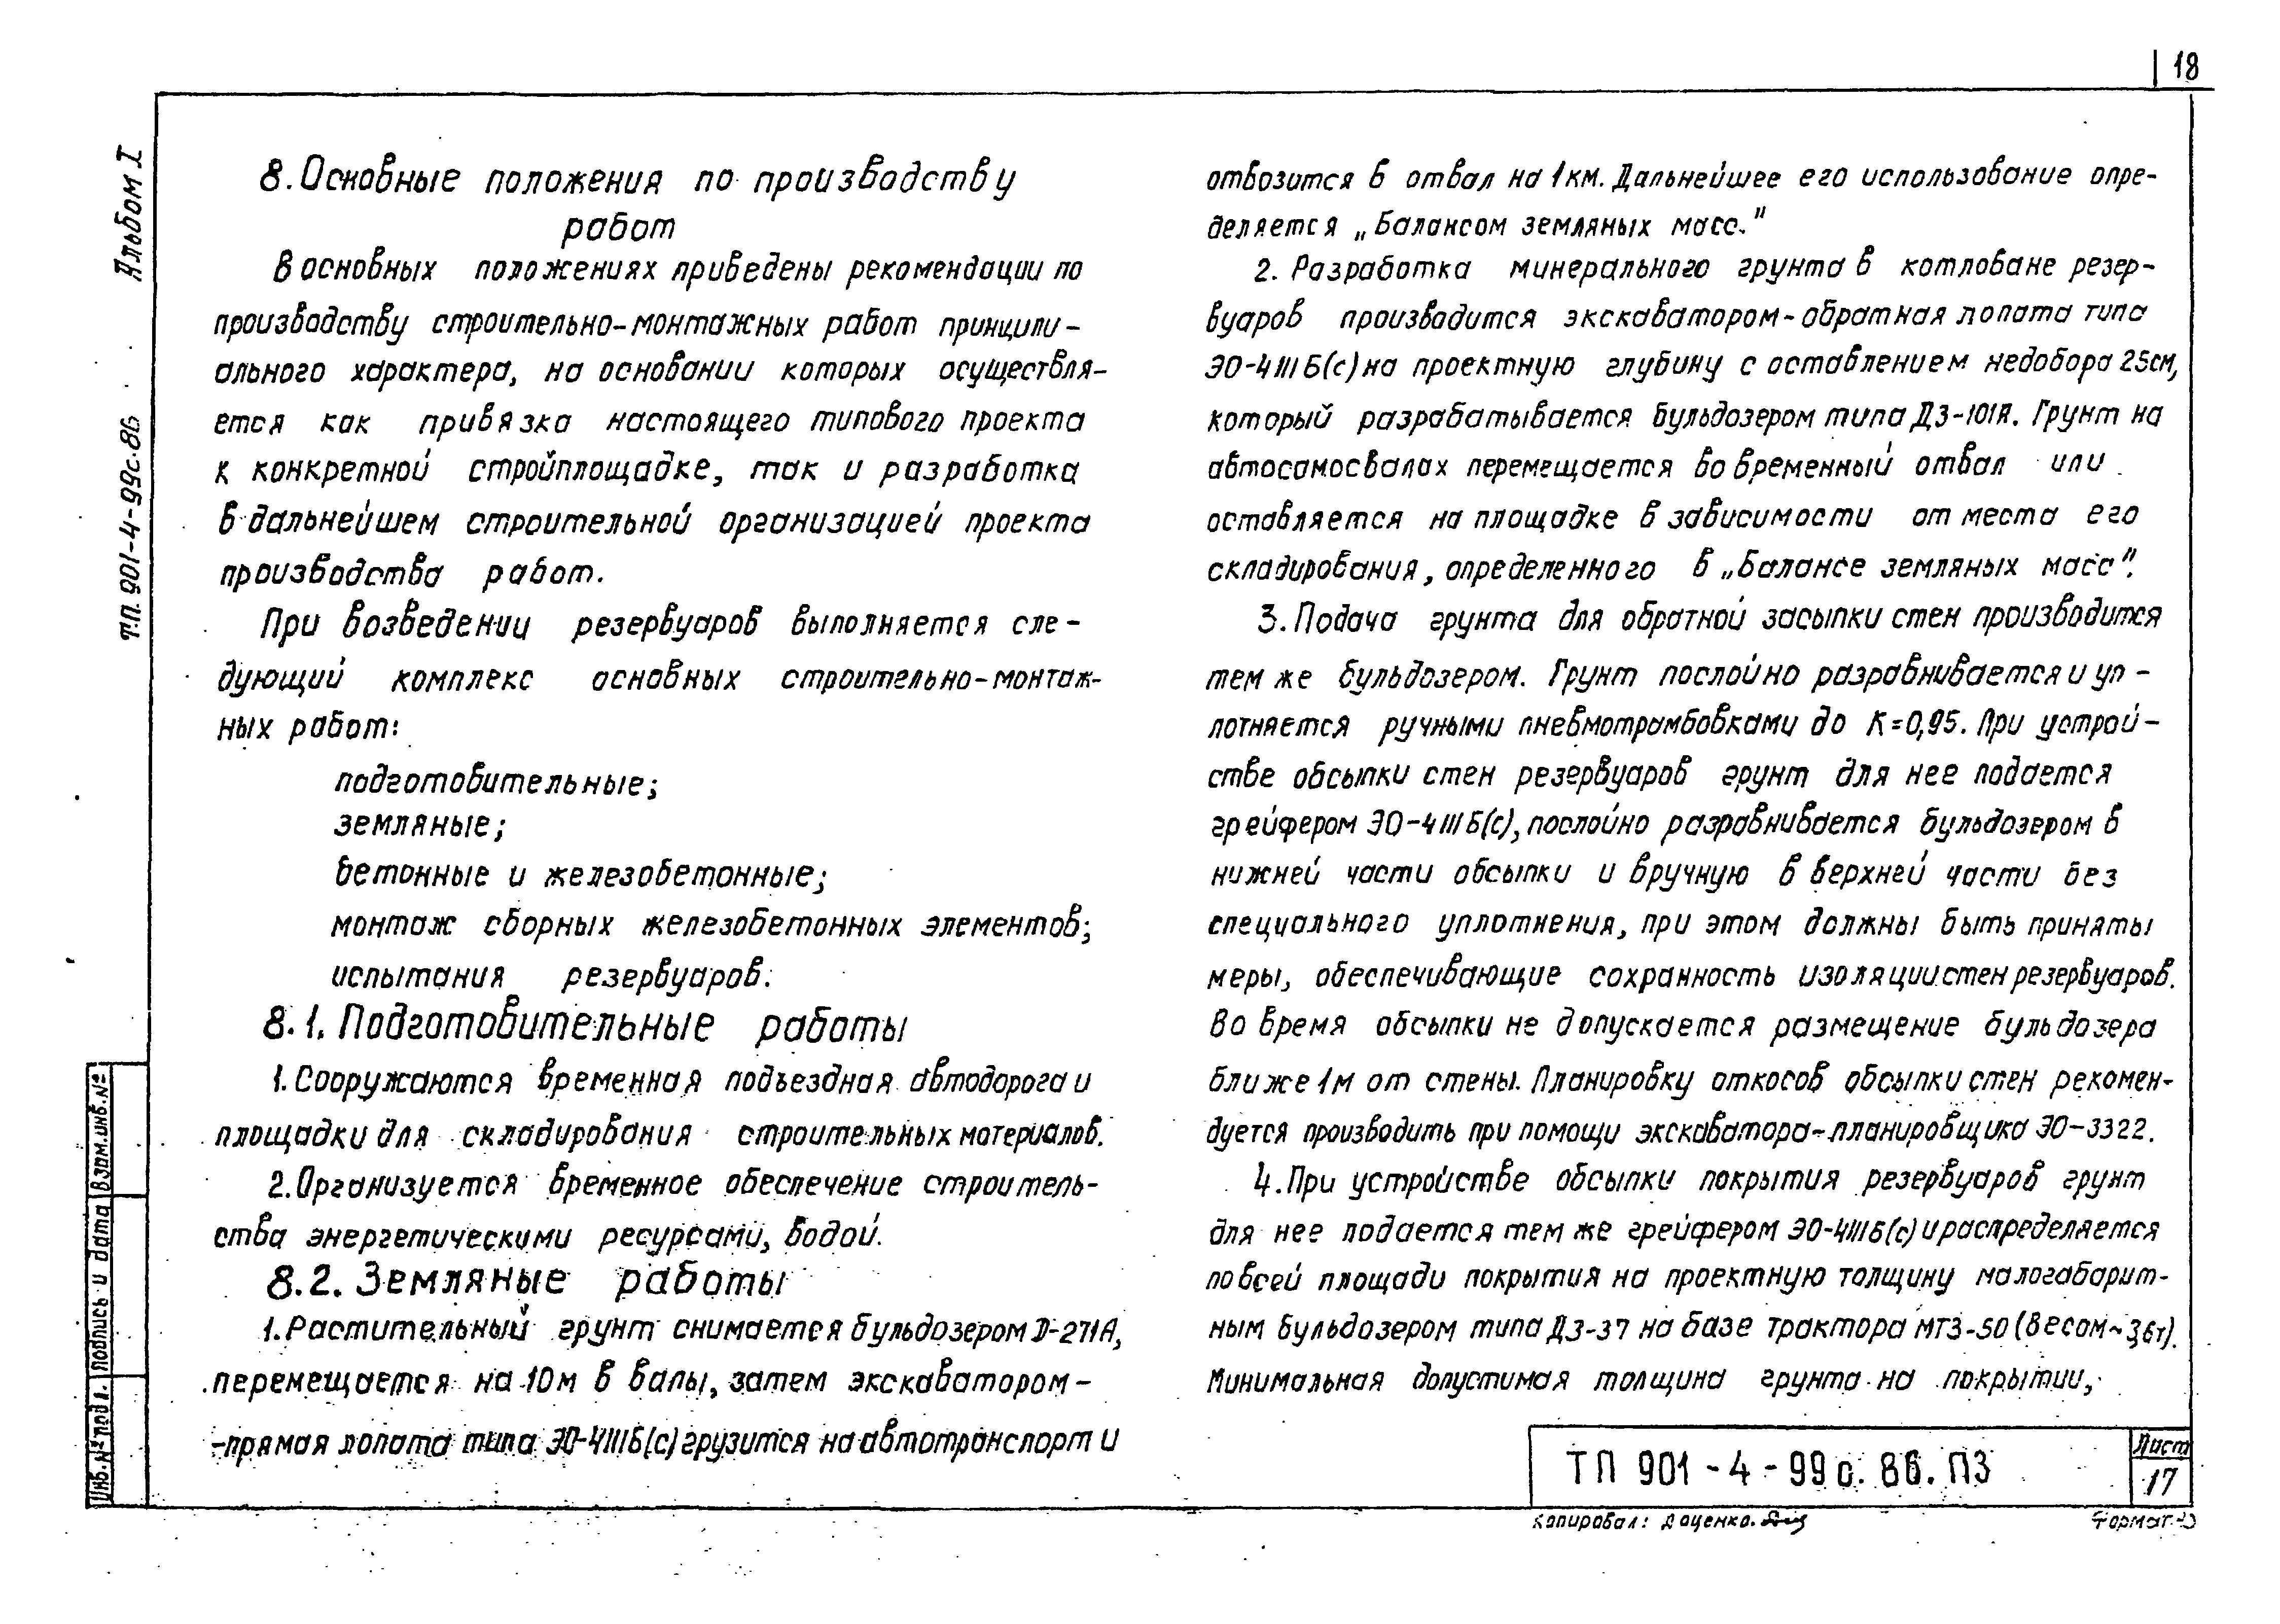 18
Альбом I
Т.П. 901-4-99с.86
8. Основные положения по производству
работ
В основных положениях приведены рекомендации по
производству строительно-монтажных работ принципи-
ального характера, на основании которых осуществля-
ется как привязка настоящего типового проекта
к конкретной стройплощадке, так и разработка
в дальнейшем строительной организацией проекта
производства работ.
При возведении резервуаров выполняется сле-
дующий комплекс основных строительно-монтаж-
ных работ:
подготовительные;
земляные;
бетонные и железобетонные;
монтаж сборных железобетонных элементов;
испытания резервуаров.
8.1. Подготовительные работы
1. Сооружаются временная подъездная автодорога и
площадки для складирования строительных материалов.
2. Организуется временное обеспечение строитель-
ства энергетическими ресурсами, водой.
8.2. Земляные работы
1. Растительный грунт снимается бульдозером Д-271А,
перемещается на 10м в валы, затем экскаватором-
-прямая лопата типа ЭО-4111Б(с) грузится на автотранспорт и
отвозится в отвал на 1км. Дальнейшее его использование опре-
деляется „Балансом земляных масс."
2. Разработка минерального грунта в котловане резер-
вуаров производится экскаватором-обратная лопата типа
ЭО-4111Б(с) на проектную глубину с оставлением недобора 25см,
который разрабатывается бульдозером типа ДЗ-101А. Грунт на
автосамосвалах перемещается во временный отвал или
оставляется на площадке в зависимости от места его
складирования, определенного в „Балансе земляных масс".
3. Подача грунта для обратной засыпки стен производится
тем же бульдозером. Грунт послойно разравнивается и уп-
лотняется ручными пневмотрамбовками до К=0,95. При устрой-
стве обсыпки стен резервуаров грунт для нее подается
грейфером ЭО-4111Б(с), послойно разравнивается бульдозером в
нижней части обсыпки и вручную в верхней части без
специального уплотнения, при этом должны быть приняты
меры, обеспечивающие сохранность изоляции стен резервуаров.
Во время обсыпки не допускается размещение бульдозера
ближе 1м от стены. Планировку откосов обсыпки стен рекомен-
дуется производить при помощи экскаватора-планировщика ЭО-3322.
4. При устройстве обсыпки покрытия резервуаров грунт
для нее подается тем же грейфером ЭО-4111Б(с) и распределяется
по всей площади покрытия на проектную толщину малогабарит-
ным бульдозером типа ДЗ-37 на базе трактора МТЗ-50 (весом ~3,6т).
Минимальная допустимая толщина грунта на покрытии,
Инв. № подл. Подпись и дата Взам. инв. №
ТП 901-4-99с.86.ПЗ
Лист
17
Копировал: Доценко.
Формат